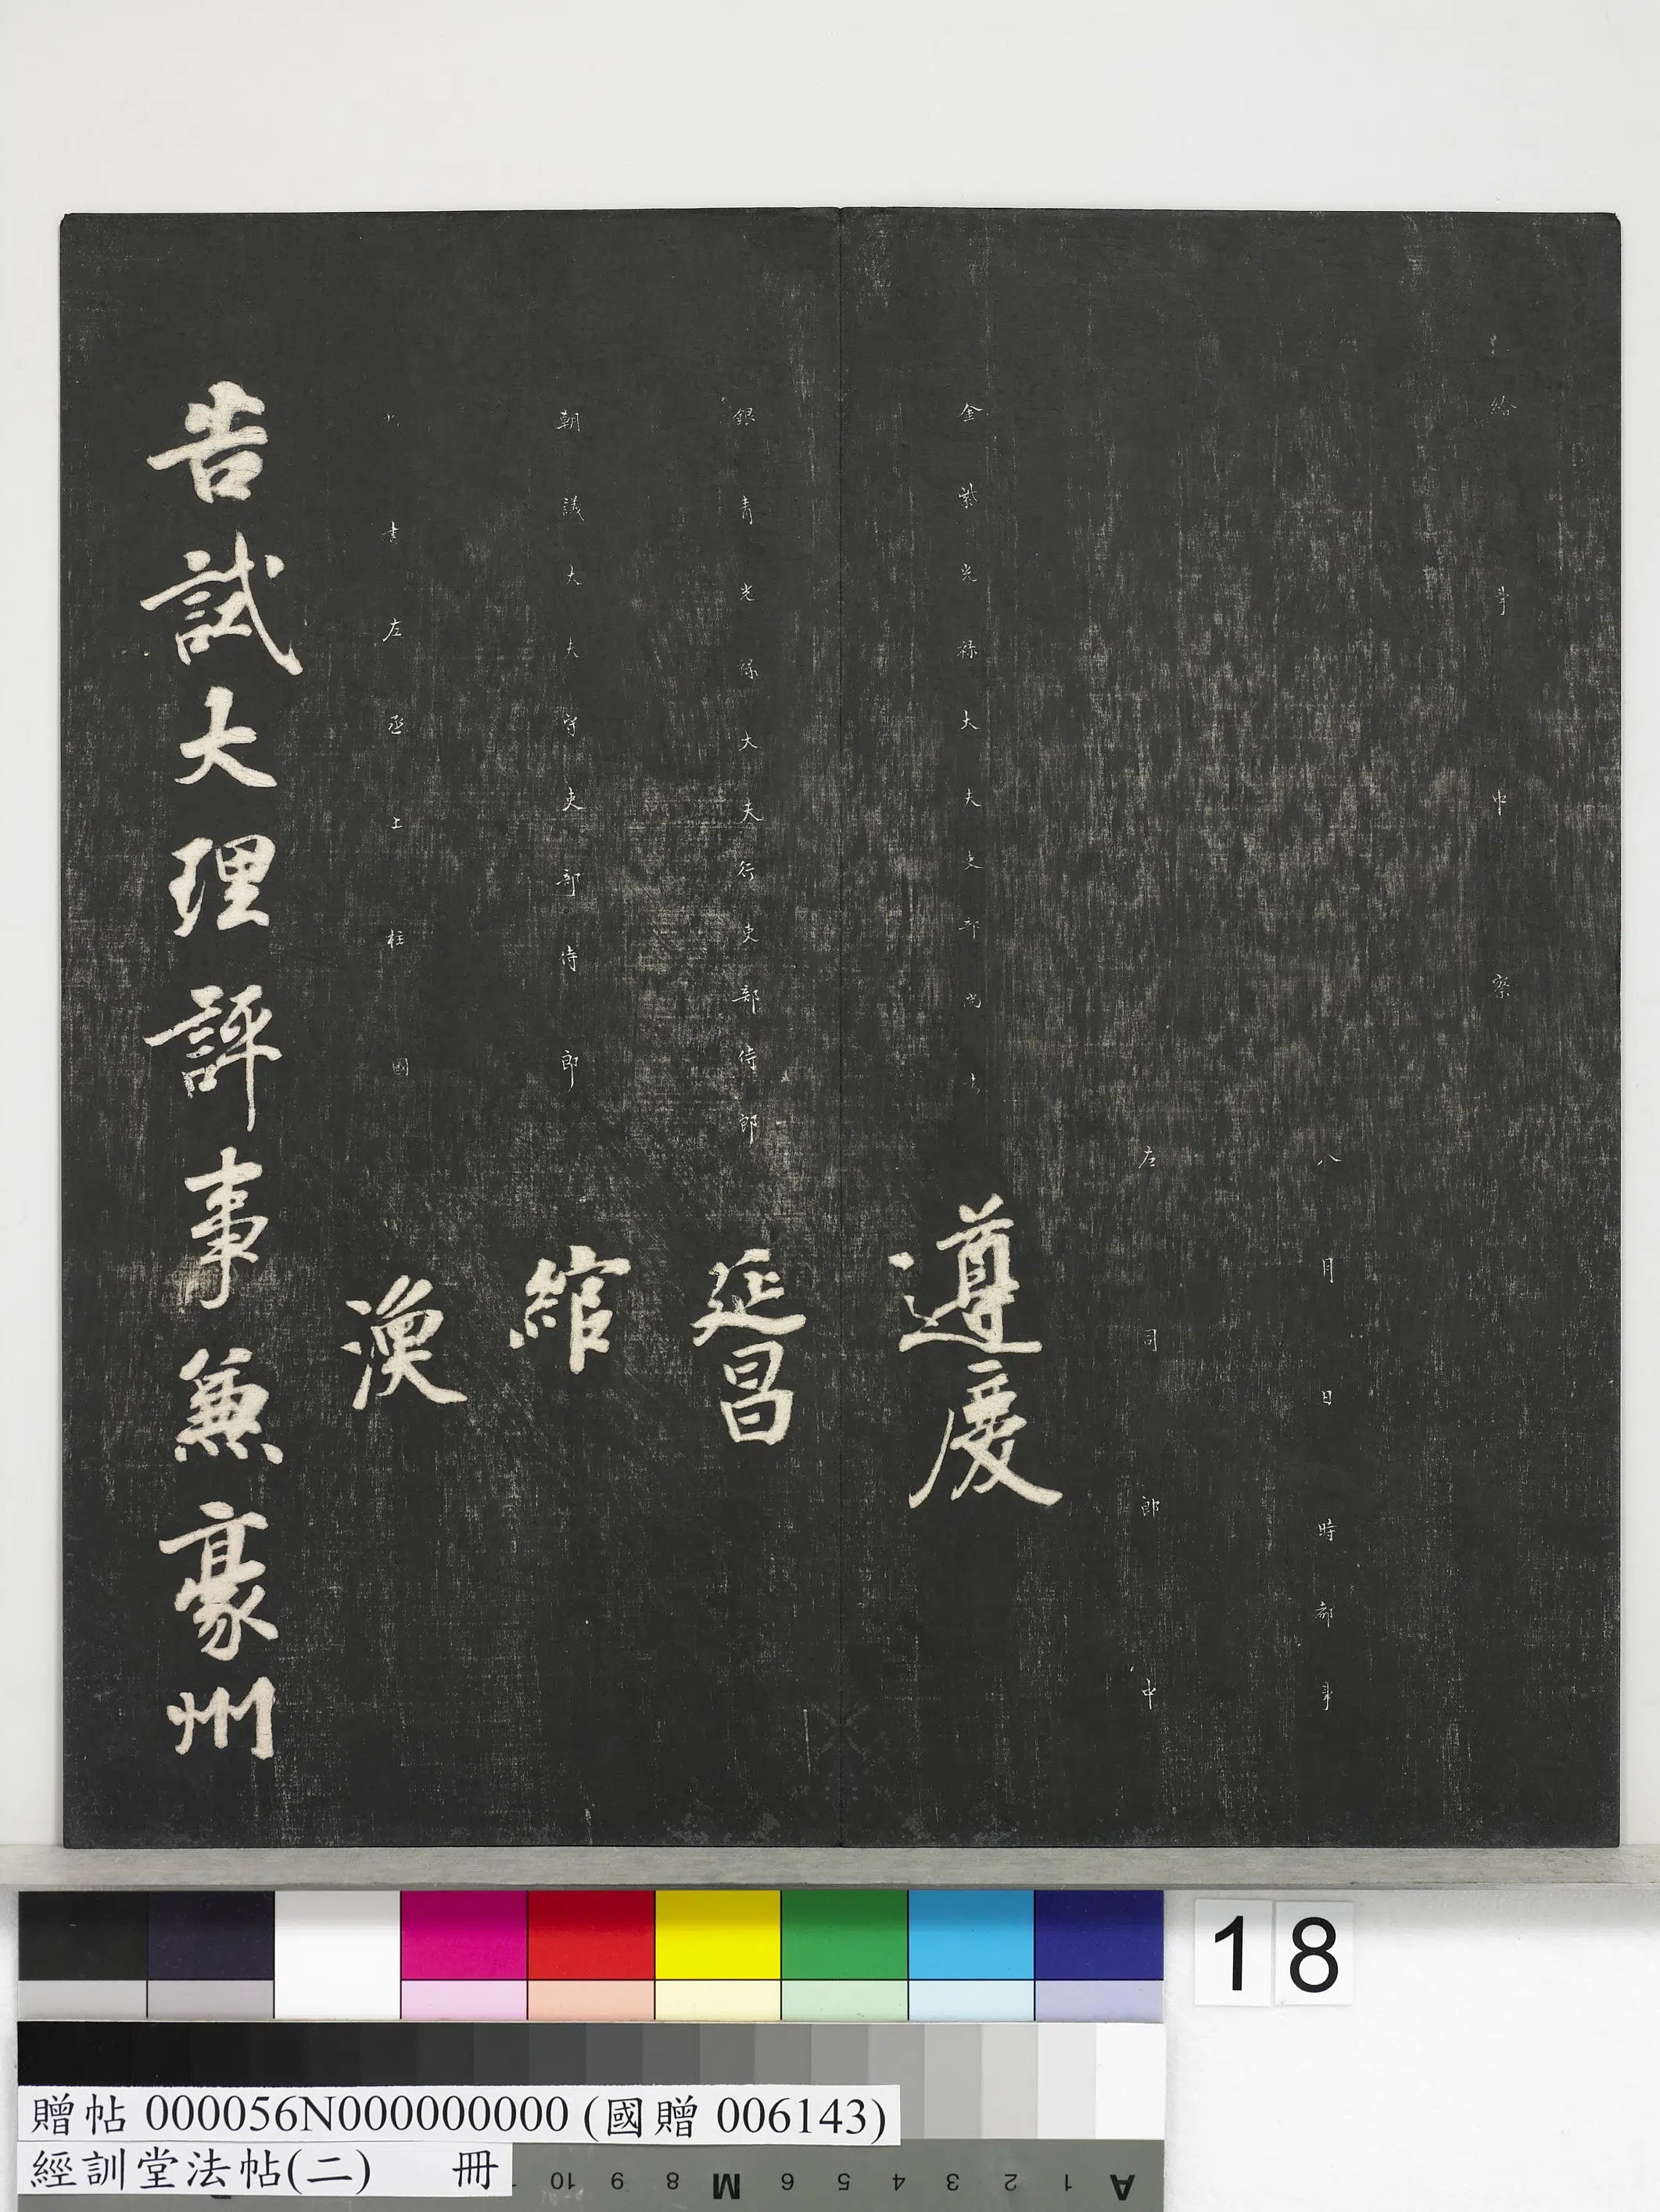 給事中察
八月日時都事
左司郎中
金紫光祿大夫吏部尚書 遵慶
銀青光祿大夫行吏部侍郎 延昌
朝議大夫守吏部侍郎 綰
尚書左丞上柱國 渙
告試大理評事兼豪州
18
贈帖 000056N000000000 (國贈 006143)
經訓堂法帖(二) 冊
10 9 8 M 6 5 4 3 2 1 A